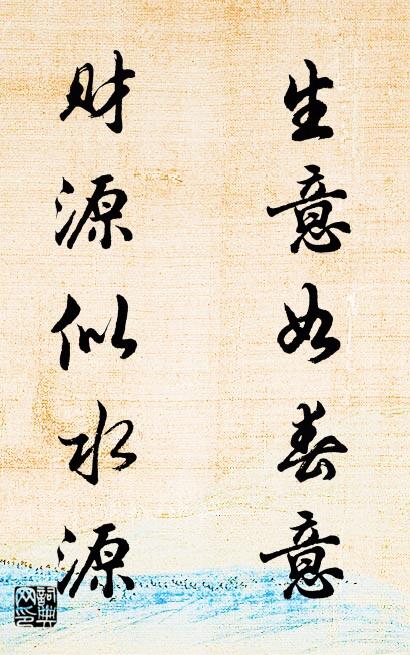 生意如春意
财源似水源